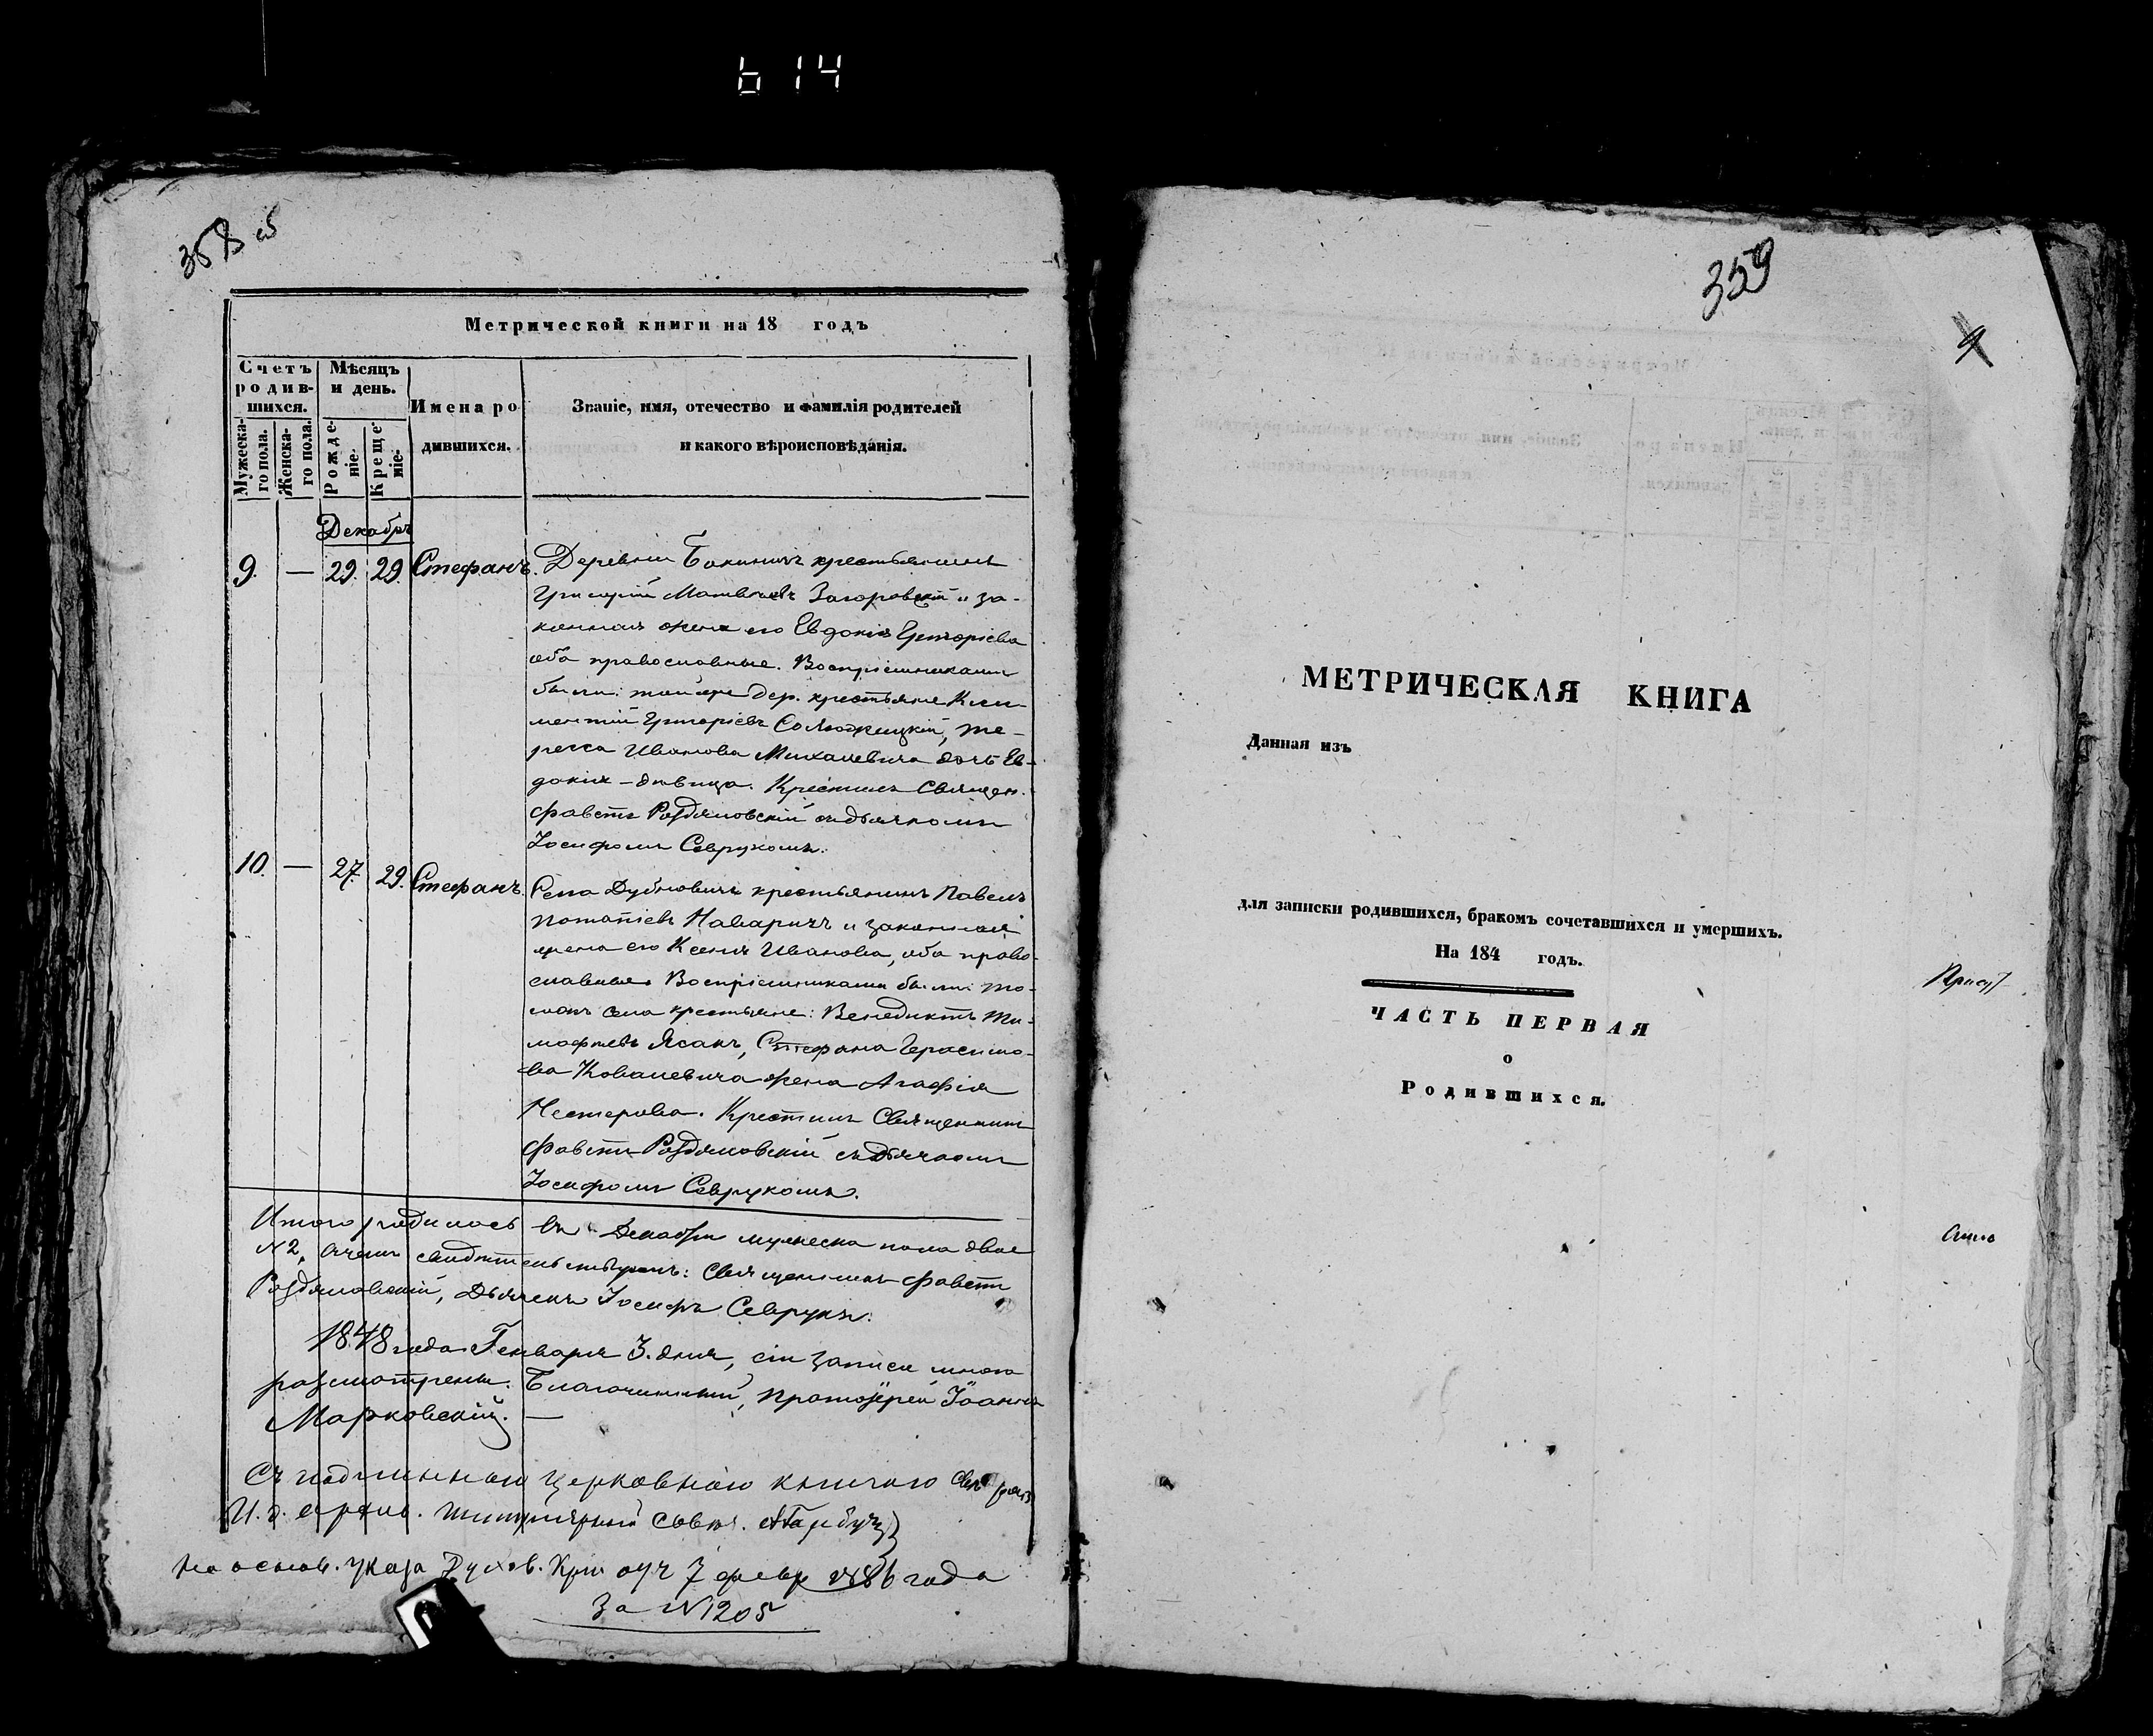 614
358 об
Метрической книги на 18 годъ
Счетъ родившихся.
Мѣсяцъ и день.
Имена родившихся.
Званіе, имя, отечество и фамилія родителей
и какого вѣроисповѣданія.
Мужеска-го пола.
Женска-го пола.
Рожде-ніе.
Креще-ніе.
Декабрь
9. — 29. 29. Стефанъ.
Деревни крестьянинъ
Григорій Матвѣевъ Загоровскій и за-
конная жена его Евдокія Григоріева
оба православные. Воспріемниками
были: тойже дер. крестьяне Кли-
ментій Григоріевъ те-
река Иванова Михалевича дочь Ев-
докія – дѣвица. Крестилъ Священ.
Фавстъ Роздяловскій съ дьячкомъ
Іосифомъ Севрукомъ.
10. — 27. 29. Стефанъ.
Села Дубновичъ крестьянинъ Павелъ
Потапіевъ Наваричъ и законная
жена его Ксенія Иванова, оба право-
славные. Воспріемниками были то-
гожъ села крестьяне: Венедиктъ Ти-
мофеевъ Ясакъ, Стефана Герасимо-
ва Ковалевича жена Агафія
Нестерова. Крестилъ Священникъ
Фавстъ Роздяловскій съ дьячкомъ
Іосифомъ Севрукомъ.
Итого родилось въ Декабри мужеска пола двое
№ 2, въ чемъ свидѣтельствуемъ: Священникъ Фавстъ
Роздяловскій, Дьячекъ Іосифъ Севрукъ.
1848 года Генваря 3. дня, сіи записи мною
разсмотрены. Благочинный, Протоіерей Іоаннъ
Марковскій. —
Съ подлинною церковною книгою
И. д. архив. титулярный совѣт.
на основ. указа Духов. 7 февр 1886 года
за № 1205
359
4
МЕТРИЧЕСКАЯ КНИГА
Данная изъ
для записки родившихся, бракомъ сочетавшихся и умершихъ.
На 184 годъ.
ЧАСТЬ ПЕРВАЯ
о
Родившихся.